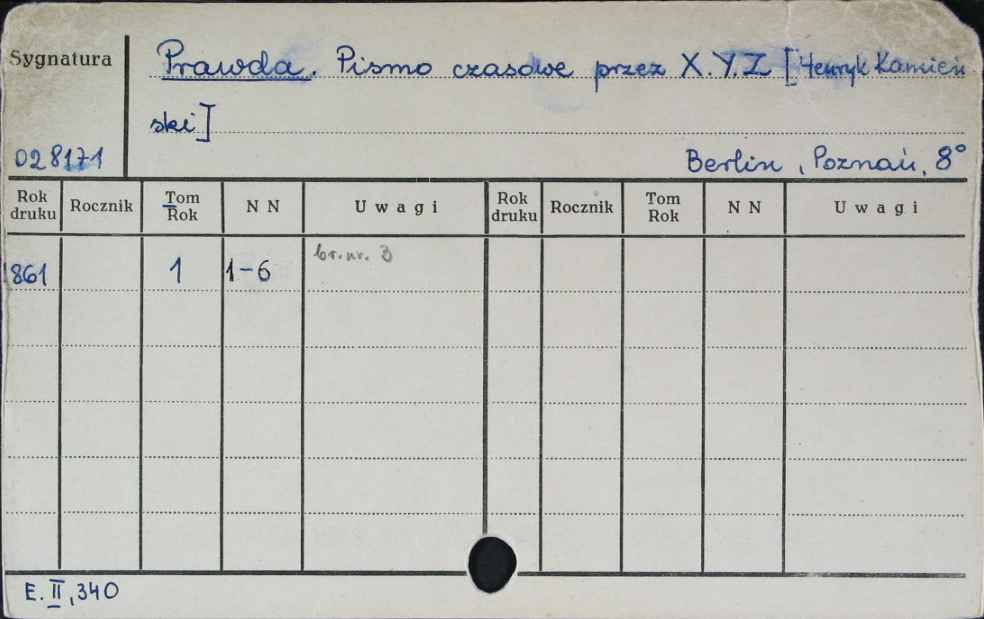 Sygnatura
Prawda. Pismo czasowe przez X.Y.Z [Henryk Kamień
ski]
028171
Berlin, Poznań, 8°
Rok druku Rocznik Tom Rok N N Uwagi Rok druku Rocznik Tom Rok N N Uwagi
1861 1 1-6 br. nr. 3
E. II, 340